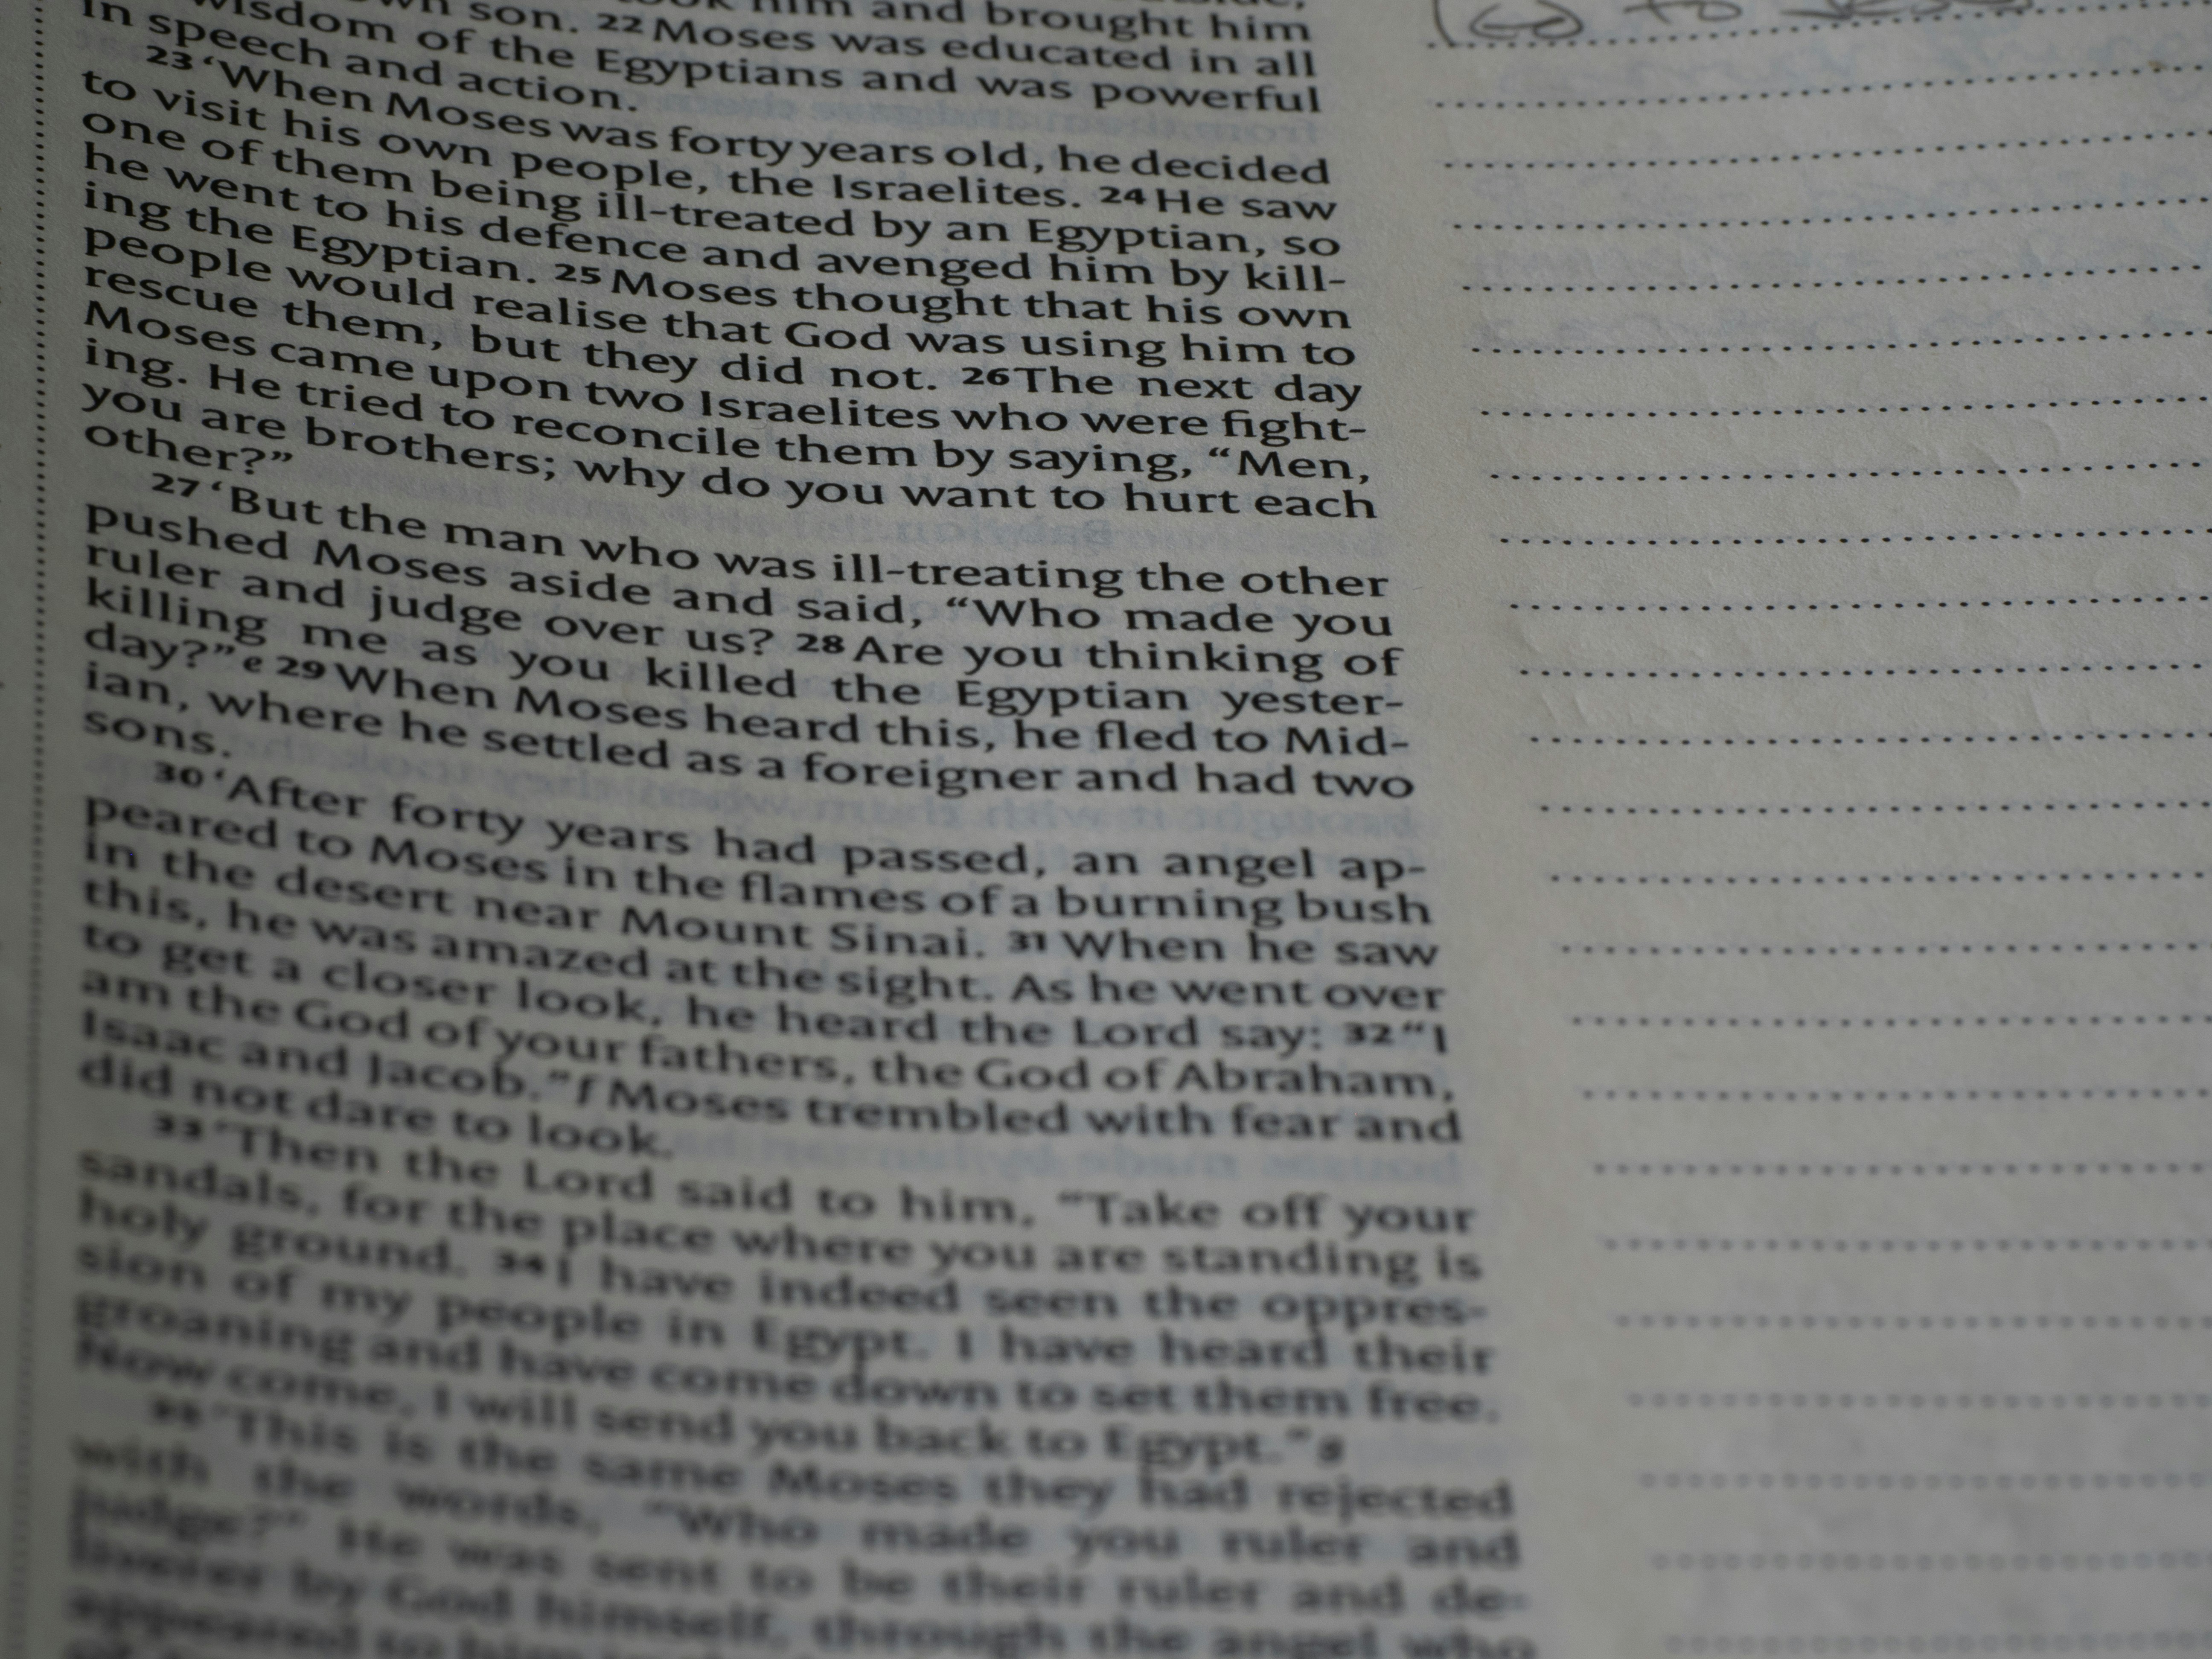 him and brought him
own son. 22 Moses was educated in all
wisdom of the Egyptians and was powerful
in speech and action.
23 ‘When Moses was forty years old, he decided
to visit his own people, the Israelites. 24 He saw
one of them being ill-treated by an Egyptian, so
he went to his defence and avenged him by kill-
ing the Egyptian. 25 Moses thought that his own
people would realise that God was using him to
rescue them, but they did not. 26 The next day
Moses came upon two Israelites who were fight-
ing. He tried to reconcile them by saying, “Men,
you are brothers; why do you want to hurt each
other?”
27 ‘But the man who was ill-treating the other
pushed Moses aside and said, “Who made you
ruler and judge over us? 28 Are you thinking of
killing me as you killed the Egyptian yester-
day?” e 29 When Moses heard this, he fled to Mid-
ian, where he settled as a foreigner and had two
sons.
30 ‘After forty years had passed, an angel ap-
peared to Moses in the flames of a burning bush
in the desert near Mount Sinai. 31 When he saw
this, he was amazed at the sight. As he went over
to get a closer look, he heard the Lord say: 32 “I
am the God of your fathers, the God of Abraham,
Isaac and Jacob.” f Moses trembled with fear and
did not dare to look.
33 ‘Then the Lord said to him, “Take off your
sandals, for the place where you are standing is
holy ground. 34 I have indeed seen the oppres-
sion of my people in Egypt. I have heard their
groaning and have come down to set them free.
Now come, I will send you back to Egypt.” g
35 ‘This is the same Moses they had rejected
with the words, “Who made you ruler and
judge?” He was sent to be their ruler and de-
liverer by God himself, through the angel who
appeared to him